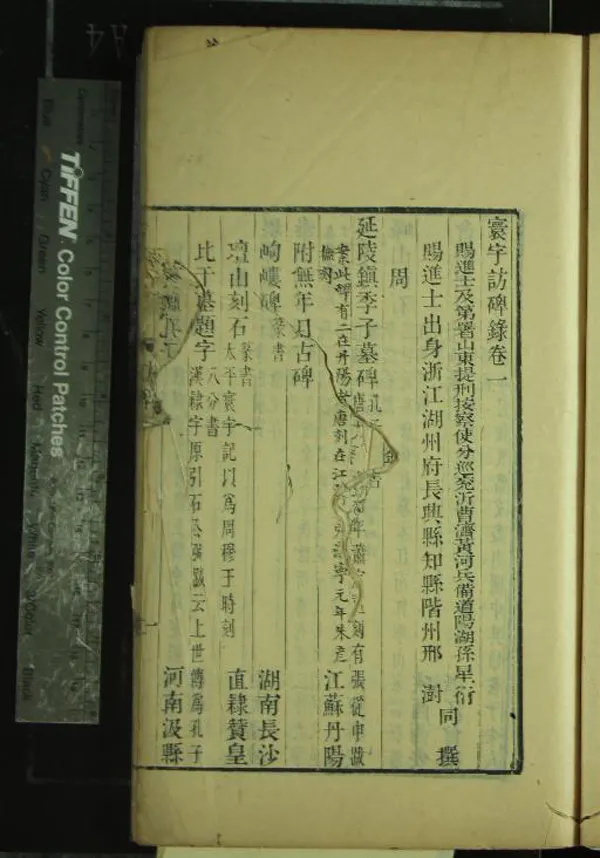 寰宇訪碑錄卷一
賜進士及第署山東提刑按察使分巡兗沂曹濟黃河兵備道陽湖孫星衍
賜進士出身浙江湖州府長興縣知縣階州邢澍
同撰
周
延陵鎮季子墓碑
年蕭 刻有張從申跋
案此碑有二在丹陽者唐刻在江 寧元年朱彥
江蘇丹陽
附無年月古碑
岣嶁碑 篆書 湖南長沙
壇山刻石 篆書 太平寰宇記以為周穆王時刻 直隸贊皇
比干墓題字 八分書 漢隸字原引石 云上世傳為孔子
河南汲縣
TIFFEN Color Control Patches
Blue
Cyan
Green
Yellow
Red
Magenta
White
3/Color
Black
Centimetres
A4